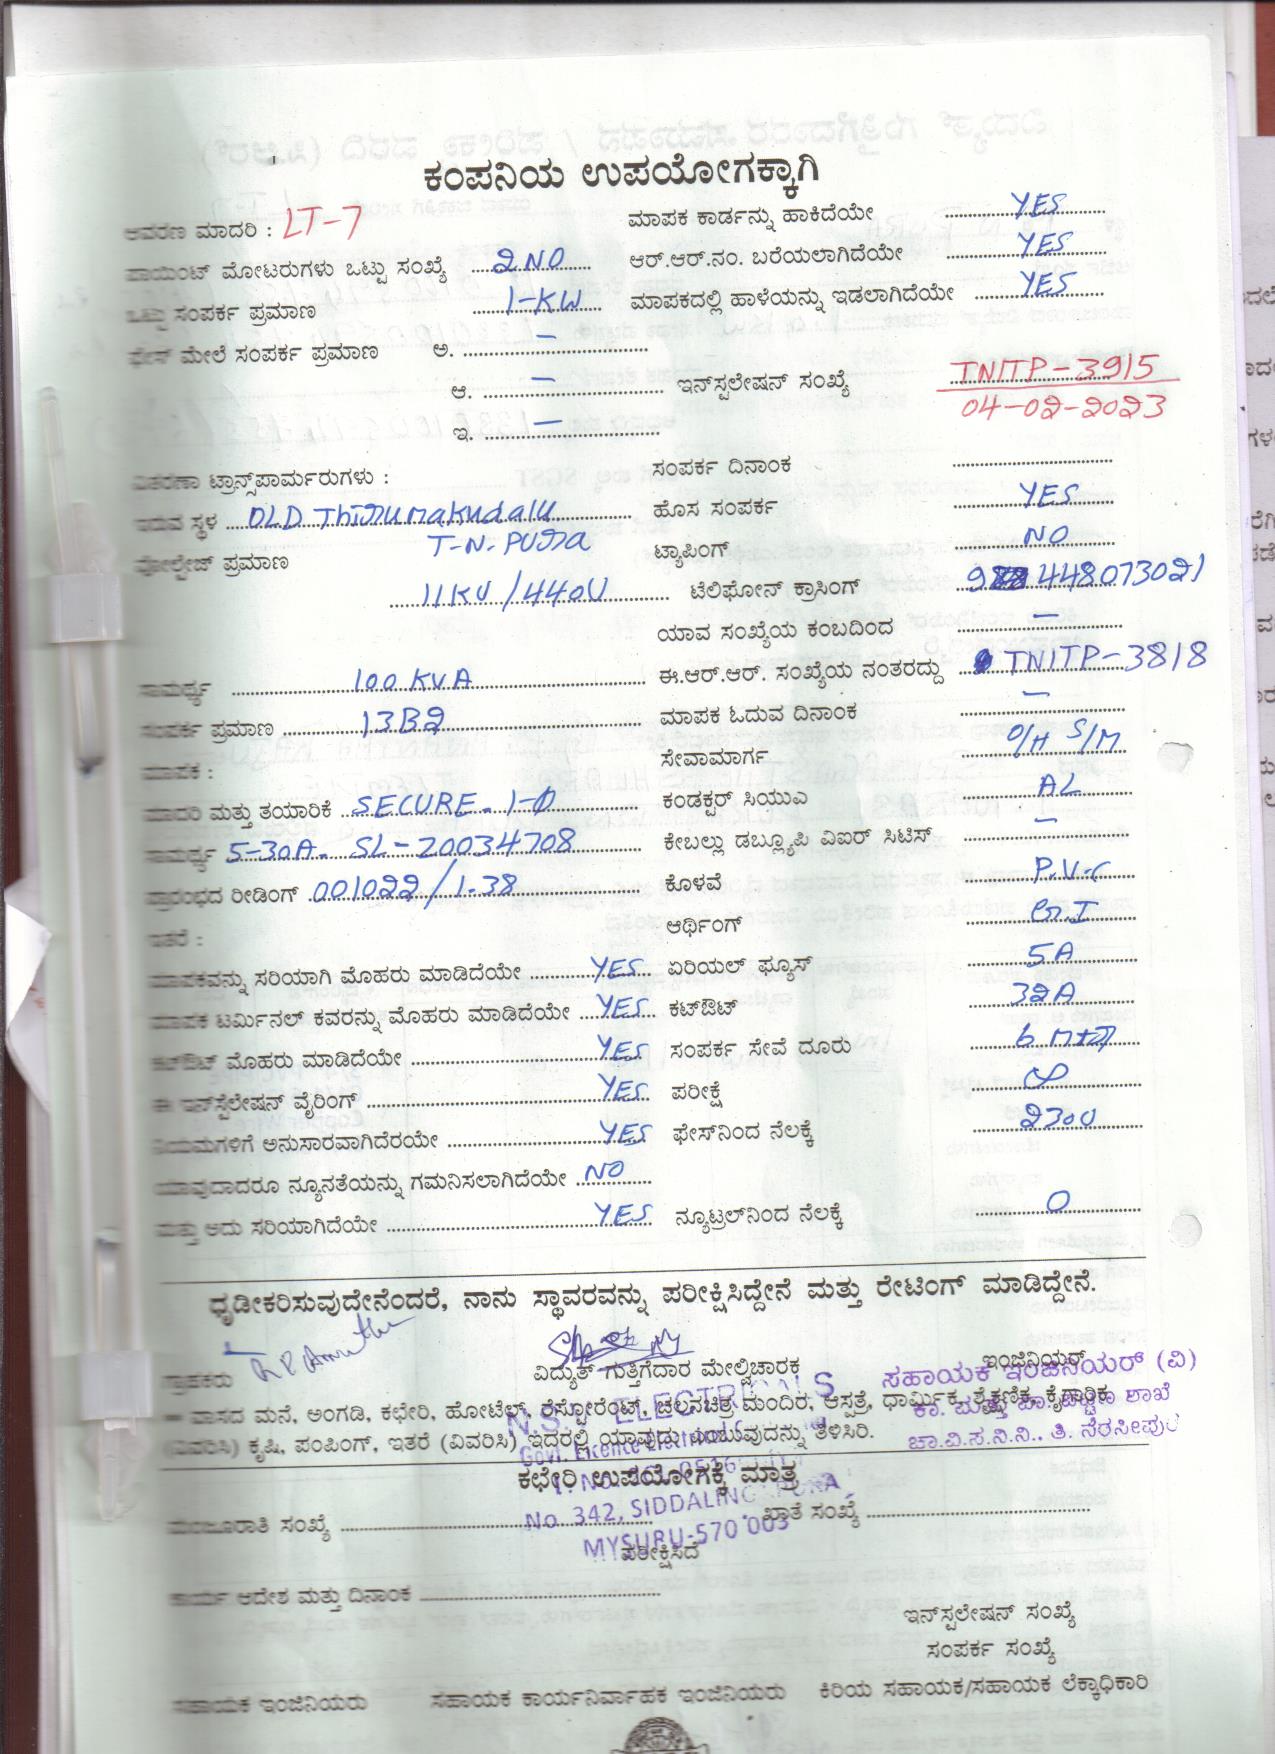 ಕಂಪನಿಯ ಉಪಯೋಗಕ್ಕಾಗಿ
ಆವರಣ ಮಾದರಿ : LT-7 ಮಾಪಕ ಕಾರ್ಡನ್ನು ಹಾಕಿದೆಯೇ YES
ಪಾಯಿಂಟ್ ಮೋಟರುಗಳು ಒಟ್ಟು ಸಂಖ್ಯೆ 2 NO ಆರ್.ಆರ್.ನಂ. ಬರೆಯಲಾಗಿದೆಯೇ YES
ಒಟ್ಟು ಸಂಪರ್ಕ ಪ್ರಮಾಣ 1-KW ಮಾಪಕದಲ್ಲಿ ಹಾಳೆಯನ್ನು ಇಡಲಾಗಿದೆಯೇ YES
ಫೇಸ್ ಮೇಲೆ ಸಂಪರ್ಕ ಪ್ರಮಾಣ ಅ. –
ಆ. – ಇನ್‌ಸ್ಟಲೇಷನ್ ಸಂಖ್ಯೆ TNITP-3915
04-02-2023
ಇ. –
ವಿತರಣಾ ಟ್ರಾನ್ಸ್‌ಪಾರ್ಮರುಗಳು : ಸಂಪರ್ಕ ದಿನಾಂಕ
ಇರುವ ಸ್ಥಳ OLD Thirumakudalu ಹೊಸ ಸಂಪರ್ಕ YES
T-N-PURA ಟ್ಯಾಪಿಂಗ್ NO
ವೋಲ್ಟೇಜ್ ಪ್ರಮಾಣ 11KV/440V ಟೆಲಿಫೋನ್ ಕ್ರಾಸಿಂಗ್ 9448073021
ಯಾವ ಸಂಖ್ಯೆಯ ಕಂಬದಿಂದ –
ಸಾಮರ್ಥ್ಯ 100 KVA ಈ.ಆರ್.ಆರ್. ಸಂಖ್ಯೆಯ ನಂತರದ್ದು TNITP-3818
ಸಂಪರ್ಕ ಪ್ರಮಾಣ 13B2 ಮಾಪಕ ಓದುವ ದಿನಾಂಕ –
ಮಾಪಕ : ಸೇವಾಮಾರ್ಗ O/H S/M
ಮಾದರಿ ಮತ್ತು ತಯಾರಿಕೆ SECURE. 1-Φ ಕಂಡಕ್ಟರ್ ಸಿಯುಎ AL
ಸಾಮರ್ಥ್ಯ 5-30A. SL-20034708 ಕೇಬಲ್ಲು ಡಬ್ಲ್ಯೂಪಿ ವಿಐರ್ ಸಿಟಿಸ್ –
ಪ್ರಾರಂಭದ ರೀಡಿಂಗ್ 001022/1.38 ಕೊಳವೆ P.V.C
ಇತರೆ : ಆರ್ಥಿಂಗ್ G.I
ಮಾಪಕವನ್ನು ಸರಿಯಾಗಿ ಮೊಹರು ಮಾಡಿದೆಯೇ YES ಏರಿಯಲ್ ಫ್ಯೂಸ್ 5A
ಮಾಪಕ ಟರ್ಮಿನಲ್ ಕವರನ್ನು ಮೊಹರು ಮಾಡಿದೆಯೇ YES ಕಟ್‌ಔಟ್ 32A
ಕಟ್‌ಔಟ್ ಮೊಹರು ಮಾಡಿದೆಯೇ YES ಸಂಪರ್ಕ ಸೇವೆ ದೂರು 6
ಈ ಇನ್‌ಸ್ಟಲೇಷನ್ ವೈರಿಂಗ್ YES ಪರೀಕ್ಷೆ
ನಿಯಮಗಳಿಗೆ ಅನುಸಾರವಾಗಿದೆರಯೇ YES ಫೇಸ್‌ನಿಂದ ನೆಲಕ್ಕೆ 230V
ಯಾವುದಾದರೂ ನ್ಯೂನತೆಯನ್ನು ಗಮನಿಸಲಾಗಿದೆಯೇ NO
ಮತ್ತು ಅದು ಸರಿಯಾಗಿದೆಯೇ YES ನ್ಯೂಟ್ರಲ್‌ನಿಂದ ನೆಲಕ್ಕೆ 0
ಧೃಢೀಕರಿಸುವುದೇನೆಂದರೆ, ನಾನು ಸ್ಥಾವರವನ್ನು ಪರೀಕ್ಷಿಸಿದ್ದೇನೆ ಮತ್ತು ರೇಟಿಂಗ್ ಮಾಡಿದ್ದೇನೆ.
ಗ್ರಾಹಕರು ವಿದ್ಯುತ್ ಗುತ್ತಿಗೆದಾರ ಮೇಲ್ವಿಚಾರಕ ಇಂಜಿನಿಯರ್
ಸಹಾಯಕ ಇಂಜಿನಿಯರ್ (ವಿ)
ವಾಸದ ಮನೆ, ಅಂಗಡಿ, ಕಛೇರಿ, ಹೋಟೆಲ್, ರೆಸ್ಟೋರೆಂಟ್, ಚಲನಚಿತ್ರ ಮಂದಿರ, ಆಸ್ಪತ್ರೆ, ಧಾರ್ಮಿಕ, ಶೈಕ್ಷಣಿಕ, ಕೈಗಾರಿಕ
(ವಿವರಿಸಿ) ಕೃಷಿ, ಪಂಪಿಂಗ್, ಇತರೆ (ವಿವರಿಸಿ) ಇದರಲ್ಲಿ ಯಾವುದು ಎಂಬುವುದನ್ನು ತಿಳಿಸಿರಿ.
ಚಾ.ವಿ.ಸ.ನಿ.ನಿ., ತಿ. ನರಸೀಪುರ
N.S. ELECTRICALS
Govt. Licence Electrical
ಕಛೇರಿ ಉಪಯೋಗಕ್ಕೆ ಮಾತ್ರ
No. 342, SIDDALINGAPURA,
ಮಂಜೂರಾತಿ ಸಂಖ್ಯೆ ಖಾತೆ ಸಂಖ್ಯೆ
MYSURU-570 003
ಪರೀಕ್ಷಿಸಿದೆ
ಕಾರ್ಯ ಆದೇಶ ಮತ್ತು ದಿನಾಂಕ
ಇನ್‌ಸ್ಟಲೇಷನ್ ಸಂಖ್ಯೆ
ಸಂಪರ್ಕ ಸಂಖ್ಯೆ
ಸಹಾಯಕ ಇಂಜಿನಿಯರು ಸಹಾಯಕ ಕಾರ್ಯನಿರ್ವಾಹಕ ಇಂಜಿನಿಯರು ಕಿರಿಯ ಸಹಾಯಕ/ಸಹಾಯಕ ಲೆಕ್ಕಾಧಿಕಾರಿ